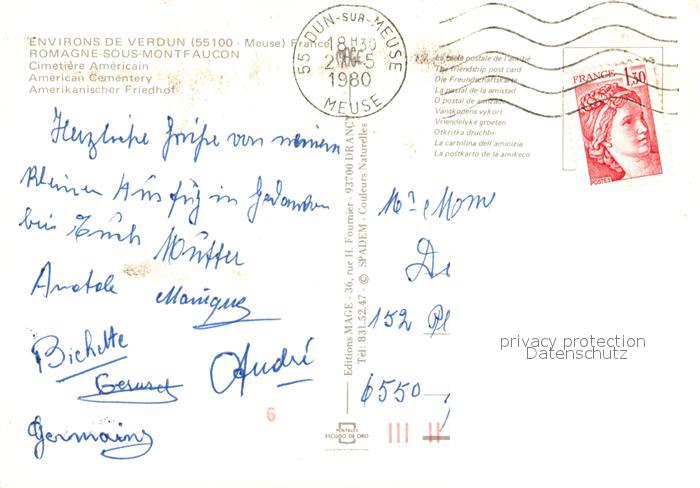 ENVIRONS DE VERDUN (55100 - Meuse) France
ROMAGNE-SOUS-MONTFAUCON
Cimetière Américain
American Cementery
Amerikanischer Friedhof
55 DUN-SUR-MEUSE
18H30
1980
MEUSE
La carte postale de l'amitié
The friendship post card
Die Freundschaftskarte
La postal de la amistad
O postal de amizade
Vänskapens vykort
Vriendelyke groeten
Otkritka druchbi
La cartolina dell'amicizia
La poŝtkarto de la amikeco
FRANCE 1,30
POSTES
Herzliche Grüße von meinem
kleinen Ausflug in Gedanken
bei Euch Mutter
Anatole Monique
Bichette
André
Germaine
Editions MAGE - 36, rue H. Fournier - 93700 DRANCY
Tél: 831.52.47 - © SPADEM - Couleurs Naturelles
Mr. Mme
De
152 Pl
6550
privacy protection
Datenschutz
6
POSTALES
ESCUDO DE ORO